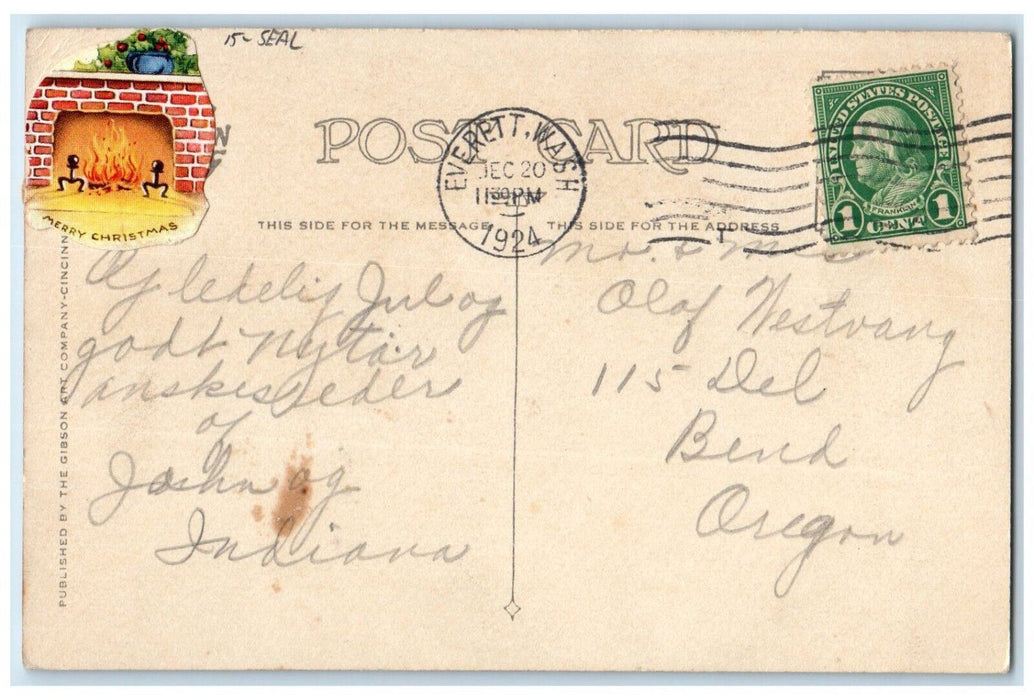 15- SEAL
MERRY CHRISTMAS
POST CARD
EVERETT, WASH
DEC 20
11 30 PM
1924
UNITED STATES POSTAGE
FRANKLIN
1 CENT 1
THIS SIDE FOR THE MESSAGE
THIS SIDE FOR THE ADDRESS
PUBLISHED BY THE GIBSON ART COMPANY-CINCINN
Og lekelig Jul og
godt Nytår
ønskes eder
af
John og
Indiana
Mr. & Mrs
Olaf Westvang
115 Del
Bend
Oregon